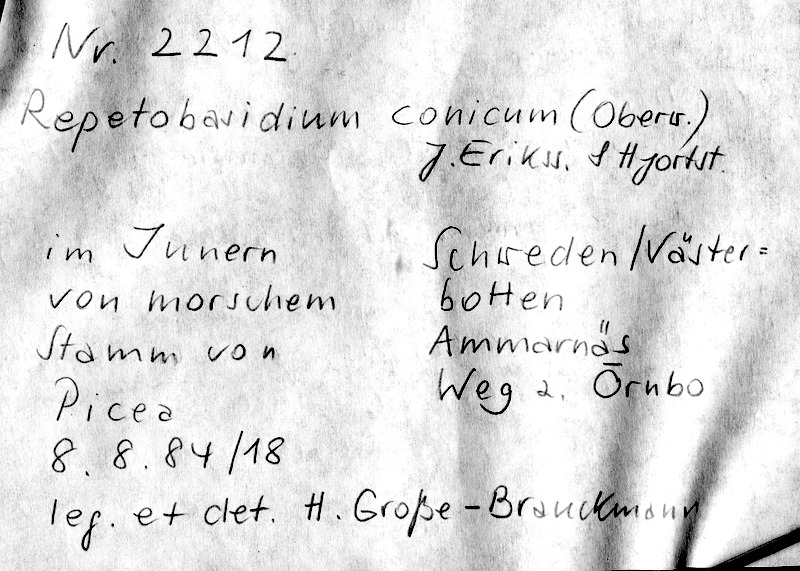 Nr. 2212
Repetobasidium conicum (Oberw.)
J. Erikss. & Hjortst.
im Innern
von morschem
Stamm von
Picea
8. 8. 84/18
Schweden/Väster=
botten
Ammarnäs
Weg z. Örnbo
leg. et det. H. Große-Brauckmann